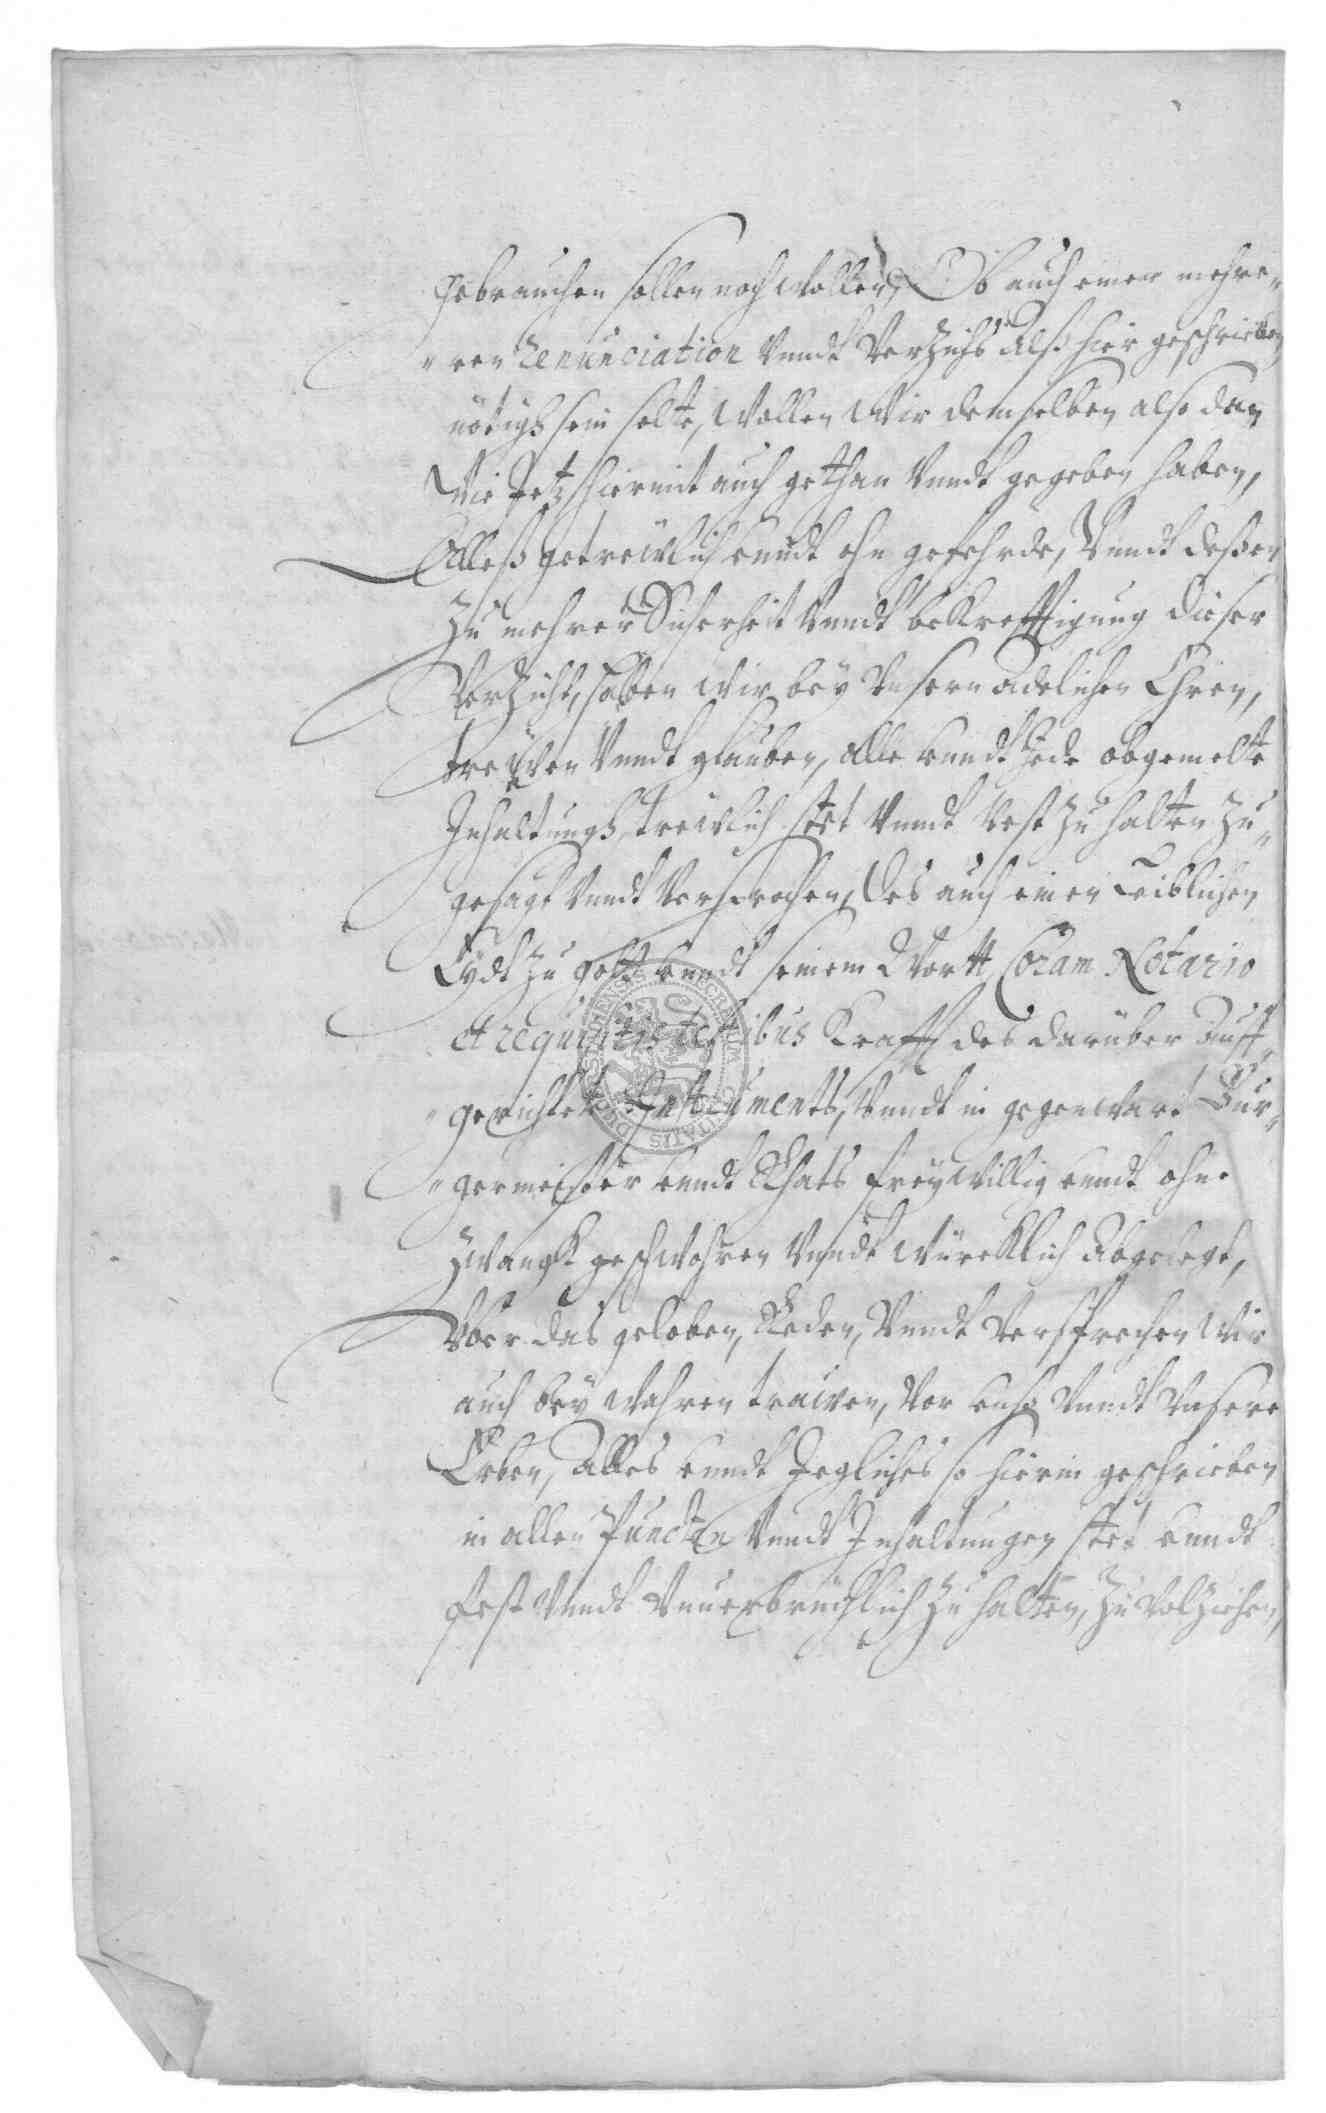 gebrauchen sollen noch wollen, Ob auch einer mehre„
„ren Renunciation Vundt Verzichs Alß hier geschrieben
nötigh sein solte, Wollen Wir demselben, also dan
Wie Jetz hiermit auch gethan Vundt gegeben haben,
Alleß getrewlich undt ohn gefehrde, Vundt deßen
Zu mehrer Sicherheit Vundt bekrefftigung dieser
Verzicht, haben Wir bey Unsern Adelichen Ehren,
trewen Vundt glauben, alle undt Jede obgemelte
Inhaltungh trewlich stet Vundt Vest zu halten zu„
gesagt Vundt Versprochen, Des auch einen Leiblichen
Eydt zu gott undt seinem Wortt Coram Notario
et requisitis testibus Krafft des darüber auff„
„gerichteten Instruments, Vundt in gegenwart Bur„
„germeister undt Rhats freywillig undt ohne
Zwangk geschwohren Vundt Würcklich Abgelegt,
Über das geloben, Reden, Vundt Versprechen Wir
auch bey Wahren trewen, Vor unß Vundt Unsere
Erben, Alles undt Jegliches so hierin geschrieben
in allen Puncten Vundt Inhaltungen stet undt
fest Vundt Vnuerbrüchlich zu halten, zu Volziehen,